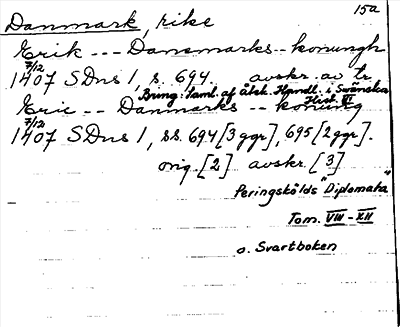 15a
Danmark, rike
Erik --- Dansmarks -- konungh
7/12
1407 SDns 1, s. 694. avskr. av tr.
Bring: Saml. af åtsk. Handl. i Swänska Hist. VI
Eric -- Danmarks -- konung
7/12
1407 SDns 1, ss. 694 [3 ggr], 695 [2 ggr].
orig. [2] avskr. [3]
Peringskölds "Diplomata"
Tom. VIII - XII
o. Svartboken